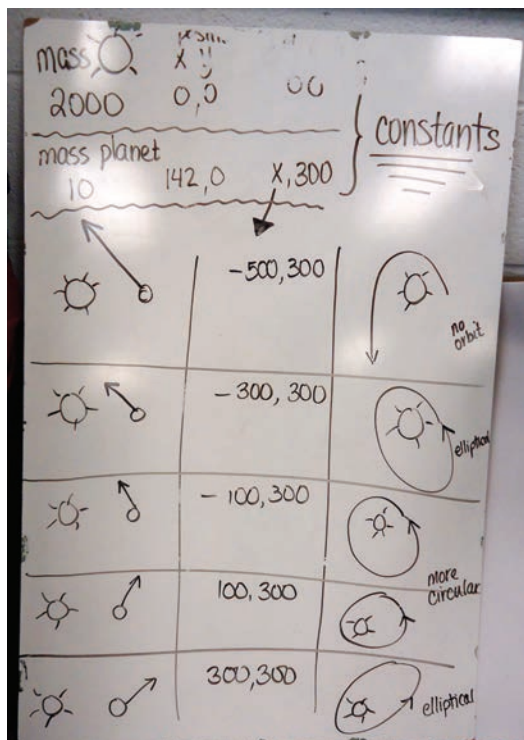 mass
x y
2000 0,0
constants
mass planet
10 142,0 x,300
-500,300
no
orbit
-300,300
elliptical
-100,300
more
circular
100,300
300,300
elliptical